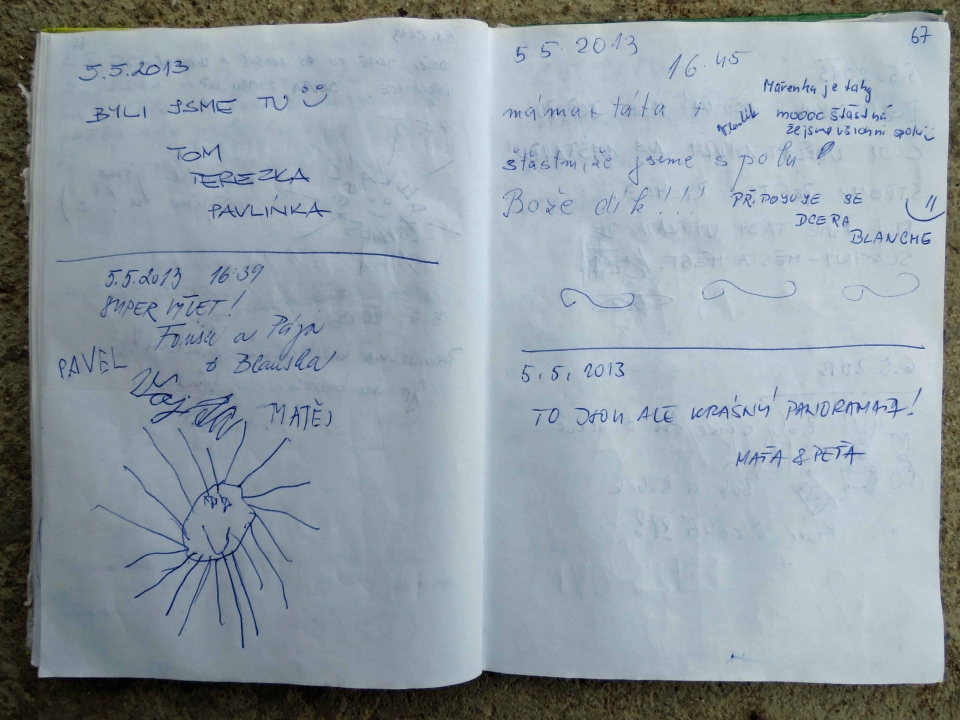 5.5.2013
BYLI JSME TU
TOM
TEREZKA
PAVLÍNKA
5.5.2013 16:39
SUPER VÝLET!
a Pája
PAVEL
MATĚJ
67
5 5. 2013
16.45
Mařenka je taky
moooc štastná
žejsme všichni spolu
máma + táta +
štastni, že jsme spolu!
Bože dík!!!
PŘIPOJUJE SE
DCERA
BLANCHE
5.5.2013
TO JSOU ALE KRÁSNÝ PANORAMATA!
MAŤA & PEŤA